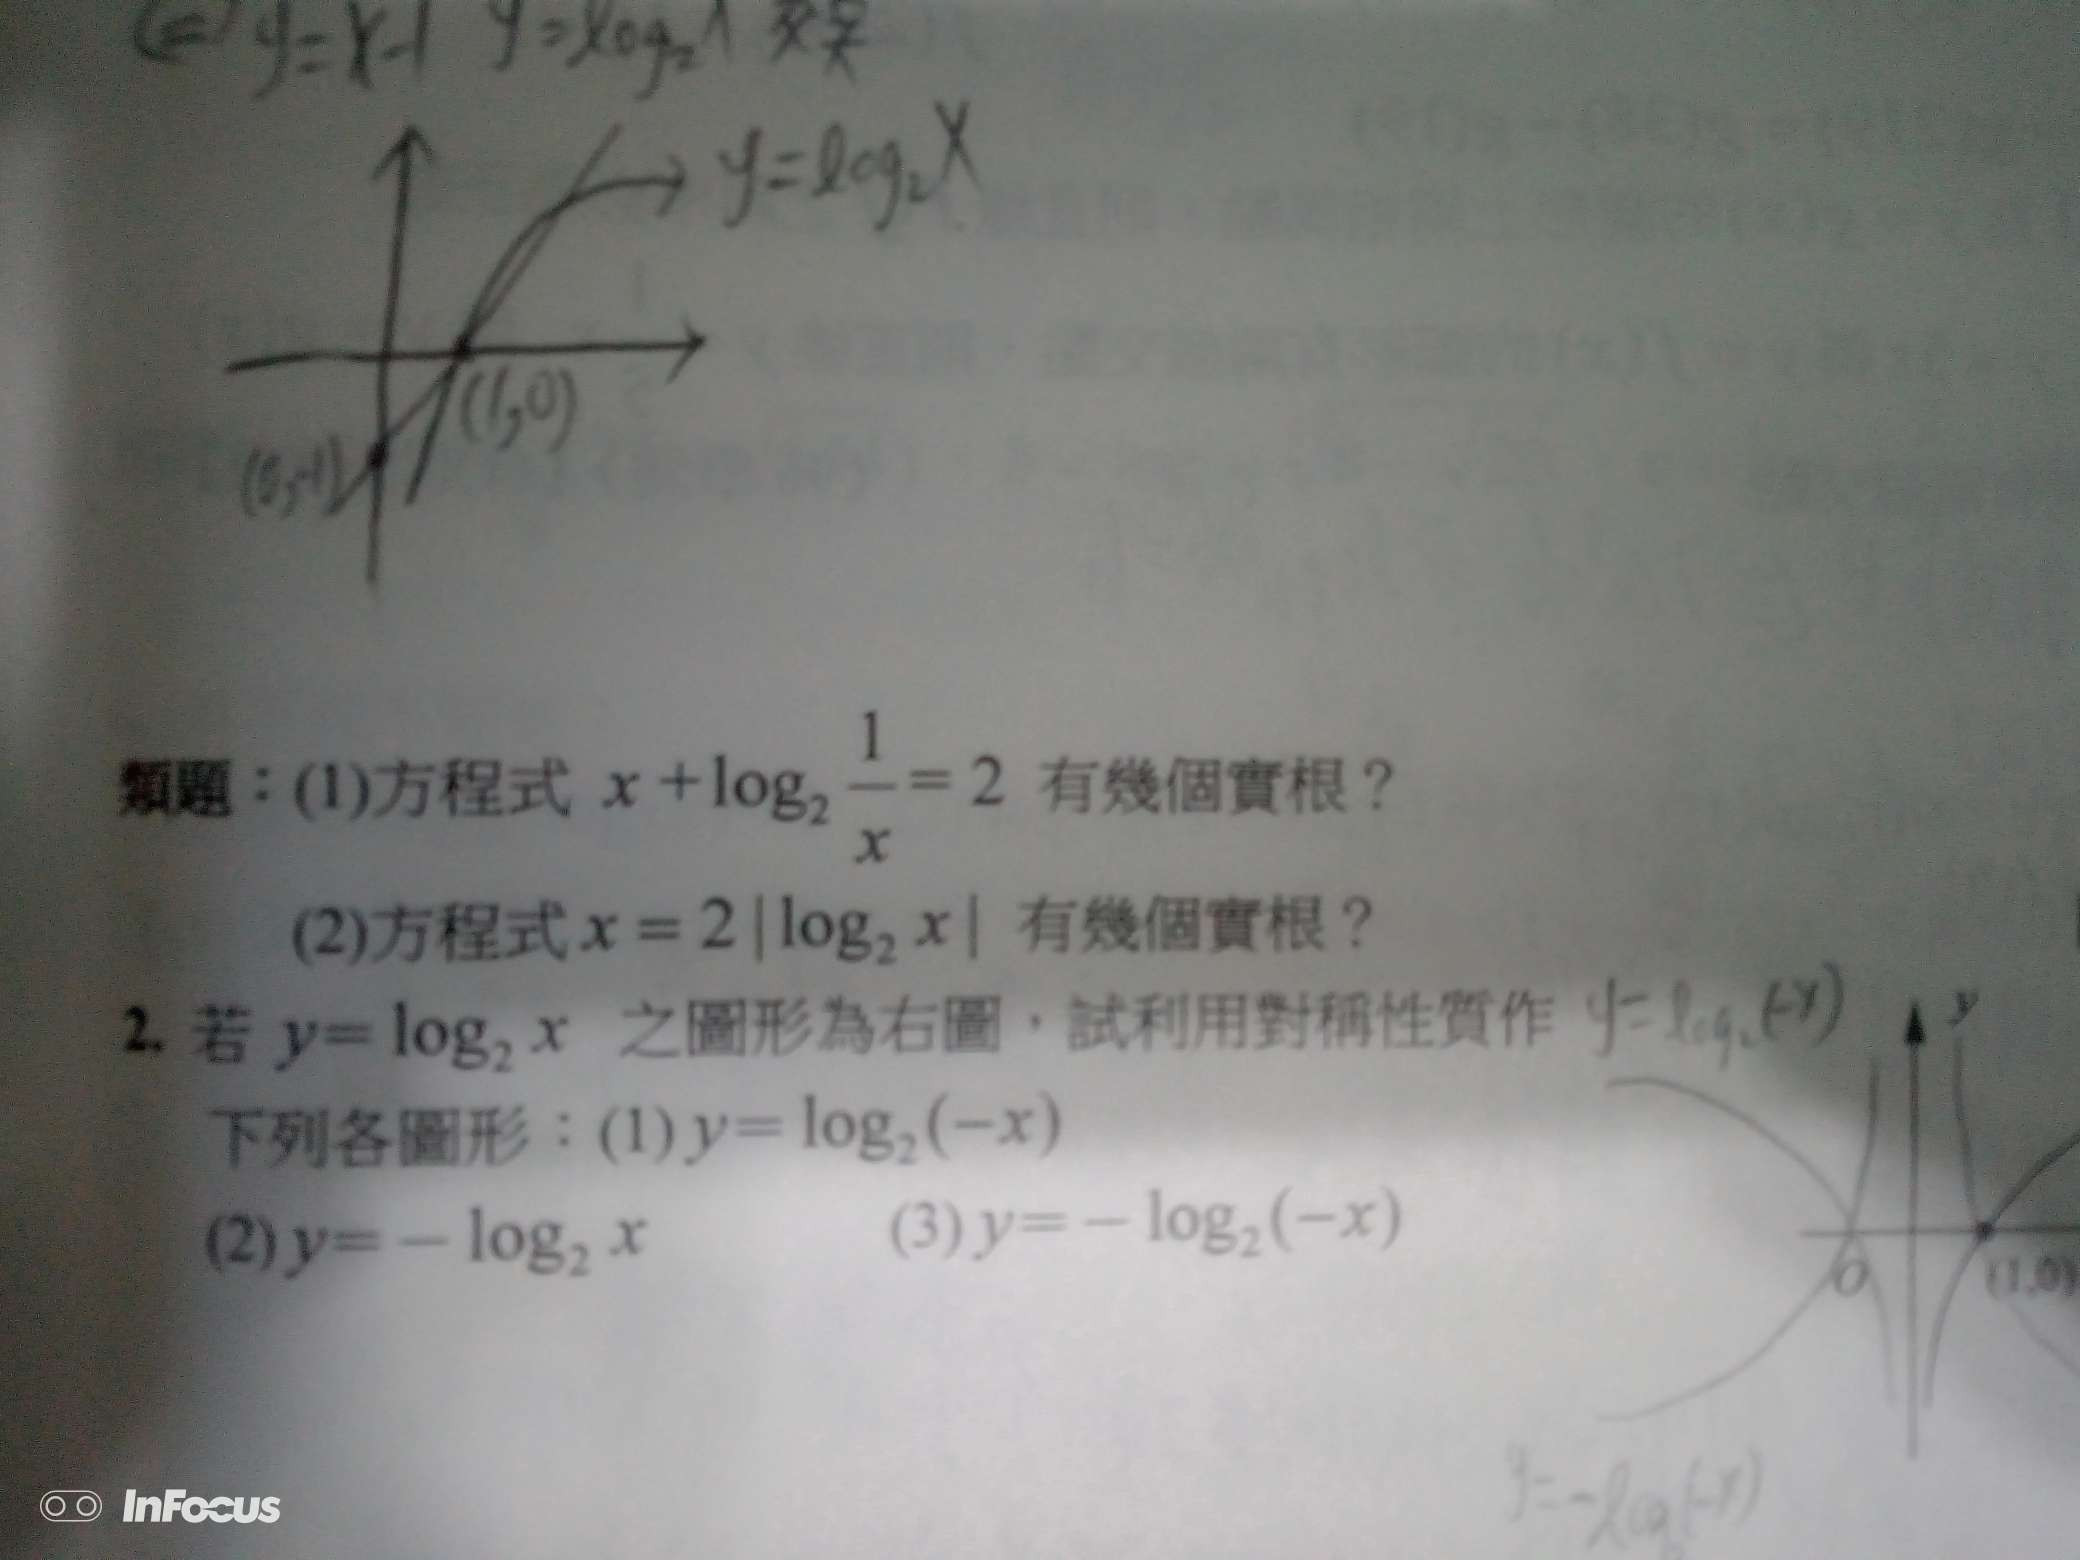 (=) y=x-1 y=log₂x 交点
y=log₂X
(1,0)
(0,-1)
類題：(1)方程式 x+log₂ 1/x = 2 有幾個實根？
(2)方程式 x = 2|log₂ x| 有幾個實根？
2. 若 y= log₂ x 之圖形為右圖，試利用對稱性質作
y=log₂(-x)
y
下列各圖形：(1) y= log₂(-x)
(2) y= - log₂ x (3) y= - log₂(-x)
O
(1,0)
y=-log₂(-x)
InFocus